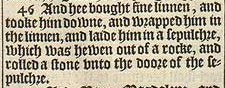 46 And hee bought fine linnen, and
tooke him downe, and wrapped him in
the linnen, and laide him in a sepulchre,
which was hewen out of a rocke, and
rolled a stone vnto the doore of the se-
pulchre.